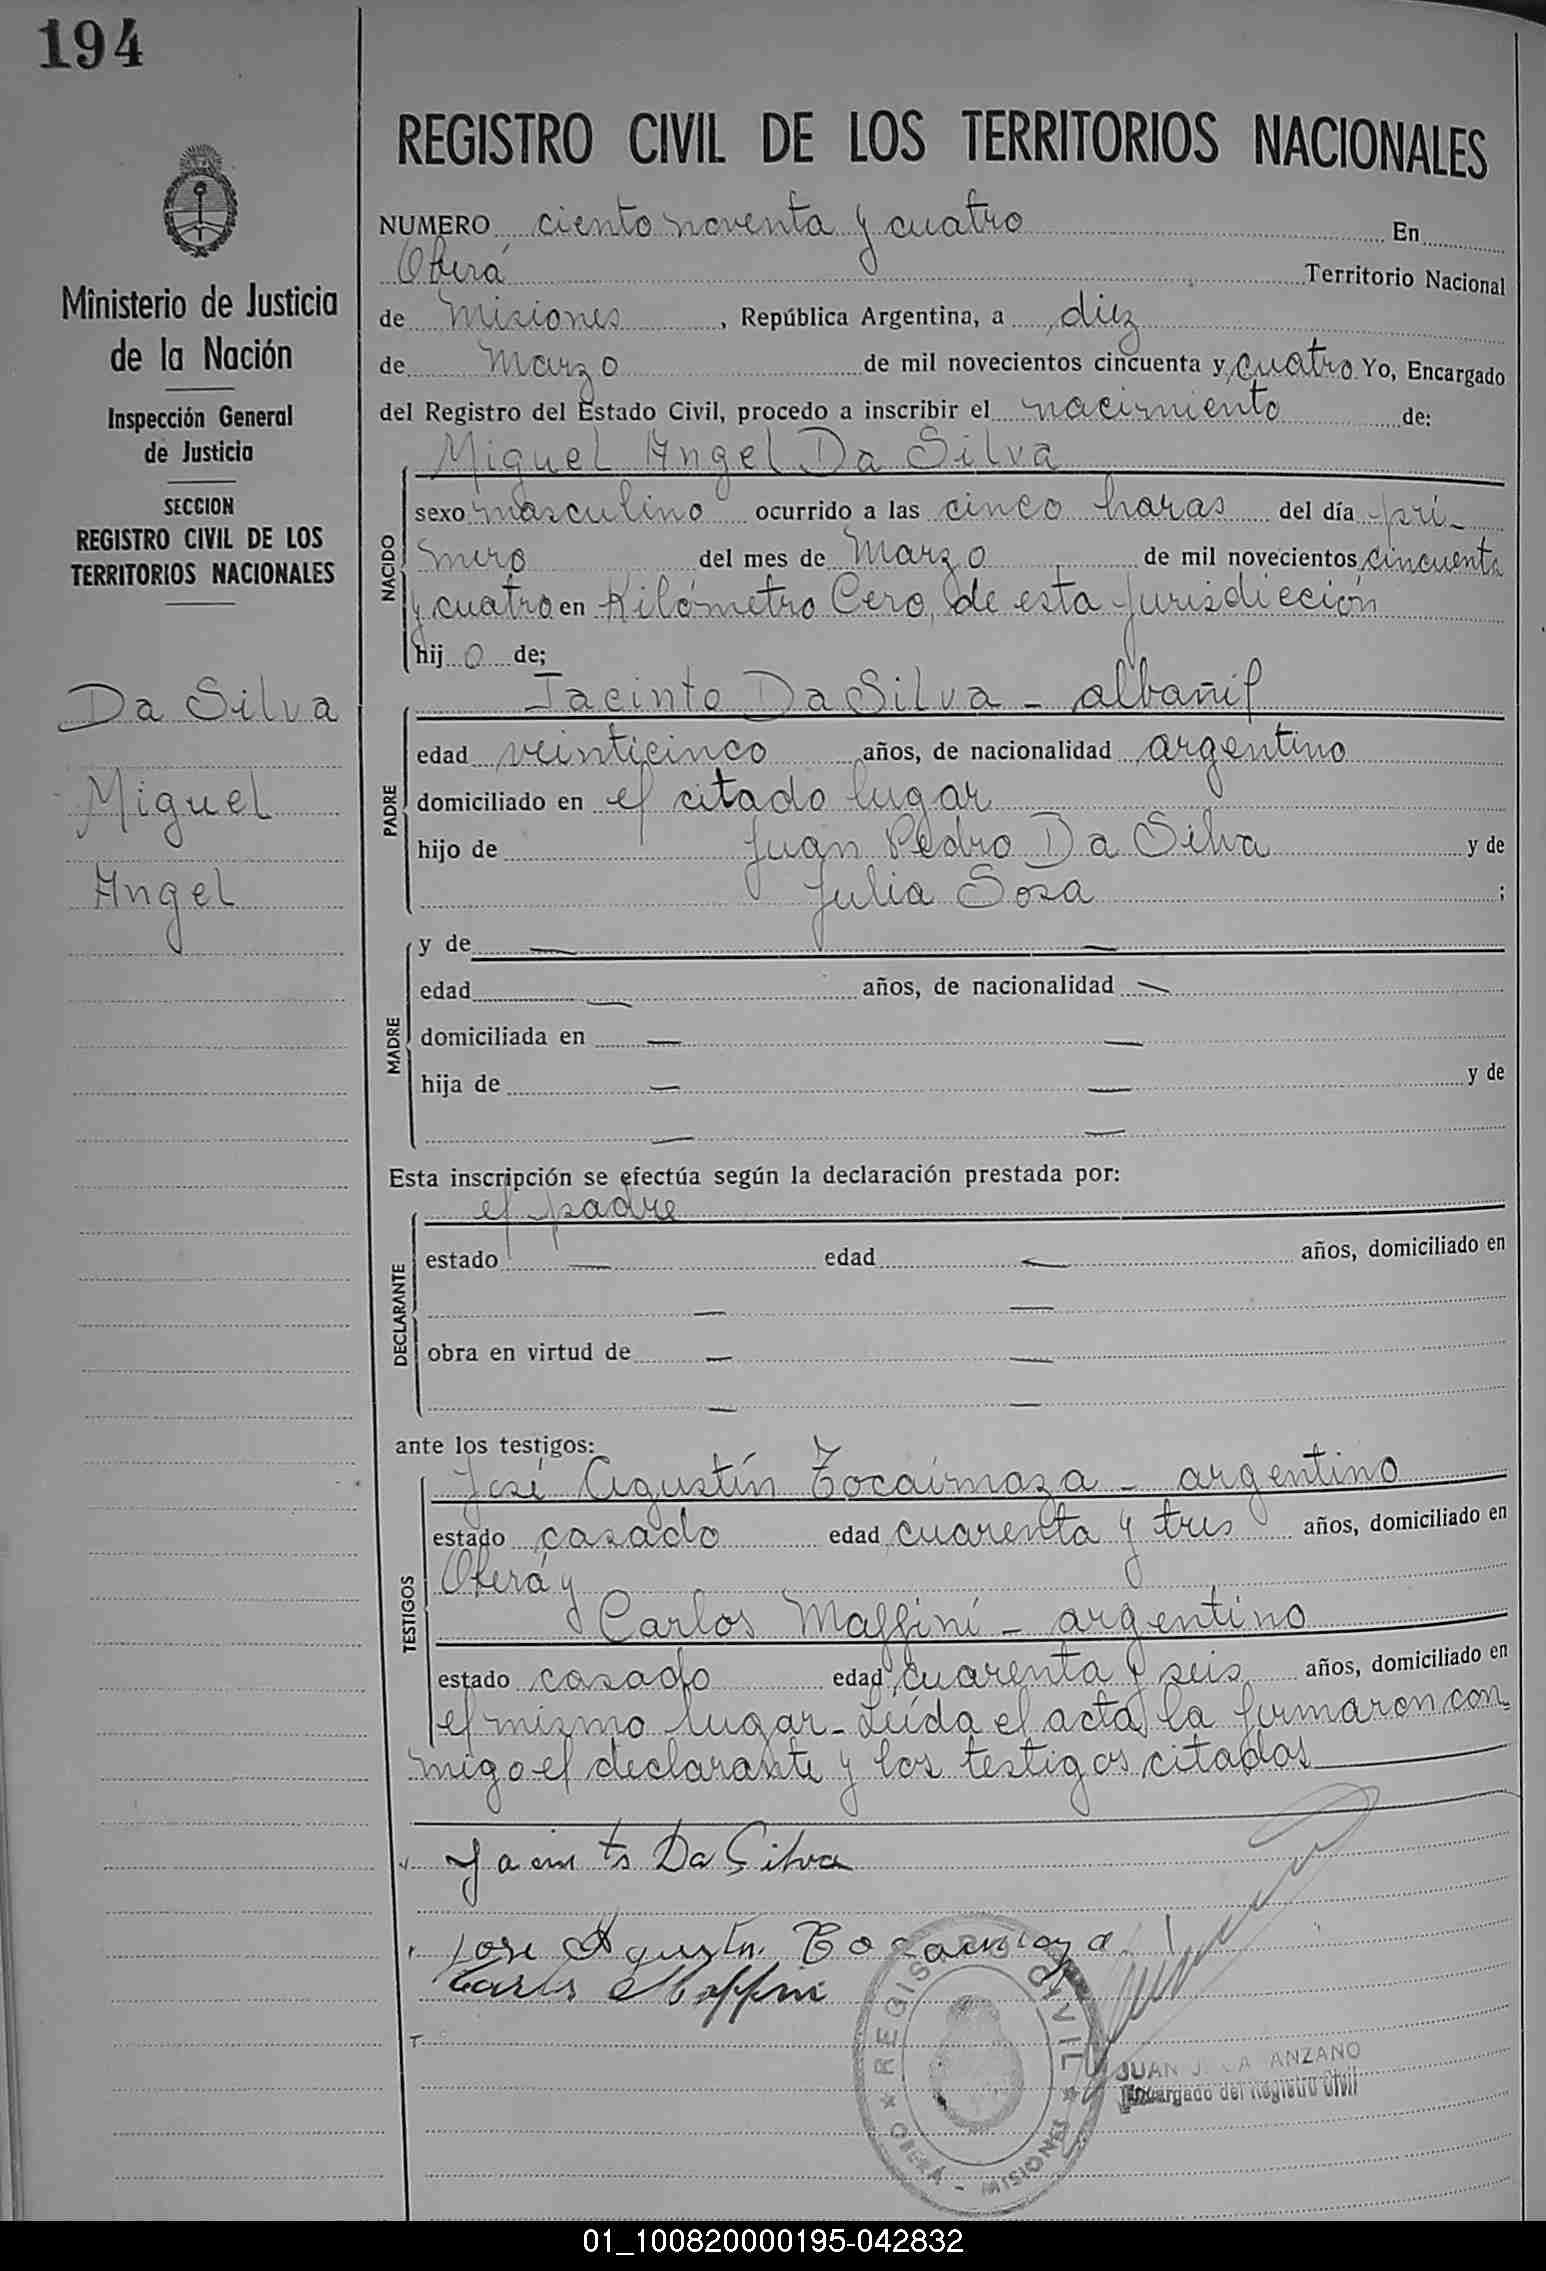 194
Ministerio de Justicia
de la Nación
Inspección General
de Justicia
SECCION
REGISTRO CIVIL DE LOS
TERRITORIOS NACIONALES
Da Silva
Miguel
Angel
REGISTRO CIVIL DE LOS TERRITORIOS NACIONALES
NUMERO ciento noventa y cuatro En
Oberá Territorio Nacional
de Misiones, República Argentina, a diez
de Marzo de mil novecientos cincuenta y cuatro Yo, Encargado
del Registro del Estado Civil, procedo a inscribir el nacimiento de:
Miguel Angel Da Silva
NACIDO
sexo masculino ocurrido a las cinco horas del día pri-
mero del mes de Marzo de mil novecientos cincuenta
y cuatro en Kilómetro Cero, de esta jurisdicción
hijo de;
Jacinto Da Silva - albañil
PADRE
edad veinticinco años, de nacionalidad argentino
domiciliado en el citado lugar
hijo de Juan Pedro Da Silva y de
Julia Sosa ;
MADRE
y de — —
edad — años, de nacionalidad —
domiciliada en — —
hija de — — y de
— —
Esta inscripción se efectúa según la declaración prestada por:
el padre
DECLARANTE
estado — edad — años, domiciliado en
— —
obra en virtud de — —
— —
ante los testigos:
José Agustín Tocaimaza - argentino
TESTIGOS
estado casado edad cuarenta y tres años, domiciliado en
Oberá y
Carlos Maffini - argentino
estado casado edad cuarenta y seis años, domiciliado en
el mismo lugar - Leída el acta, la firmaron con-
migo el declarante y los testigos citados
Jacinto Da Silva
Jose Agustin Tocaimaza
Carlos Maffini
REGISTRO CIVIL
OBERÁ - MISIONES
JUAN J.
Encargado del Registro Civil
01_100820000195-042832